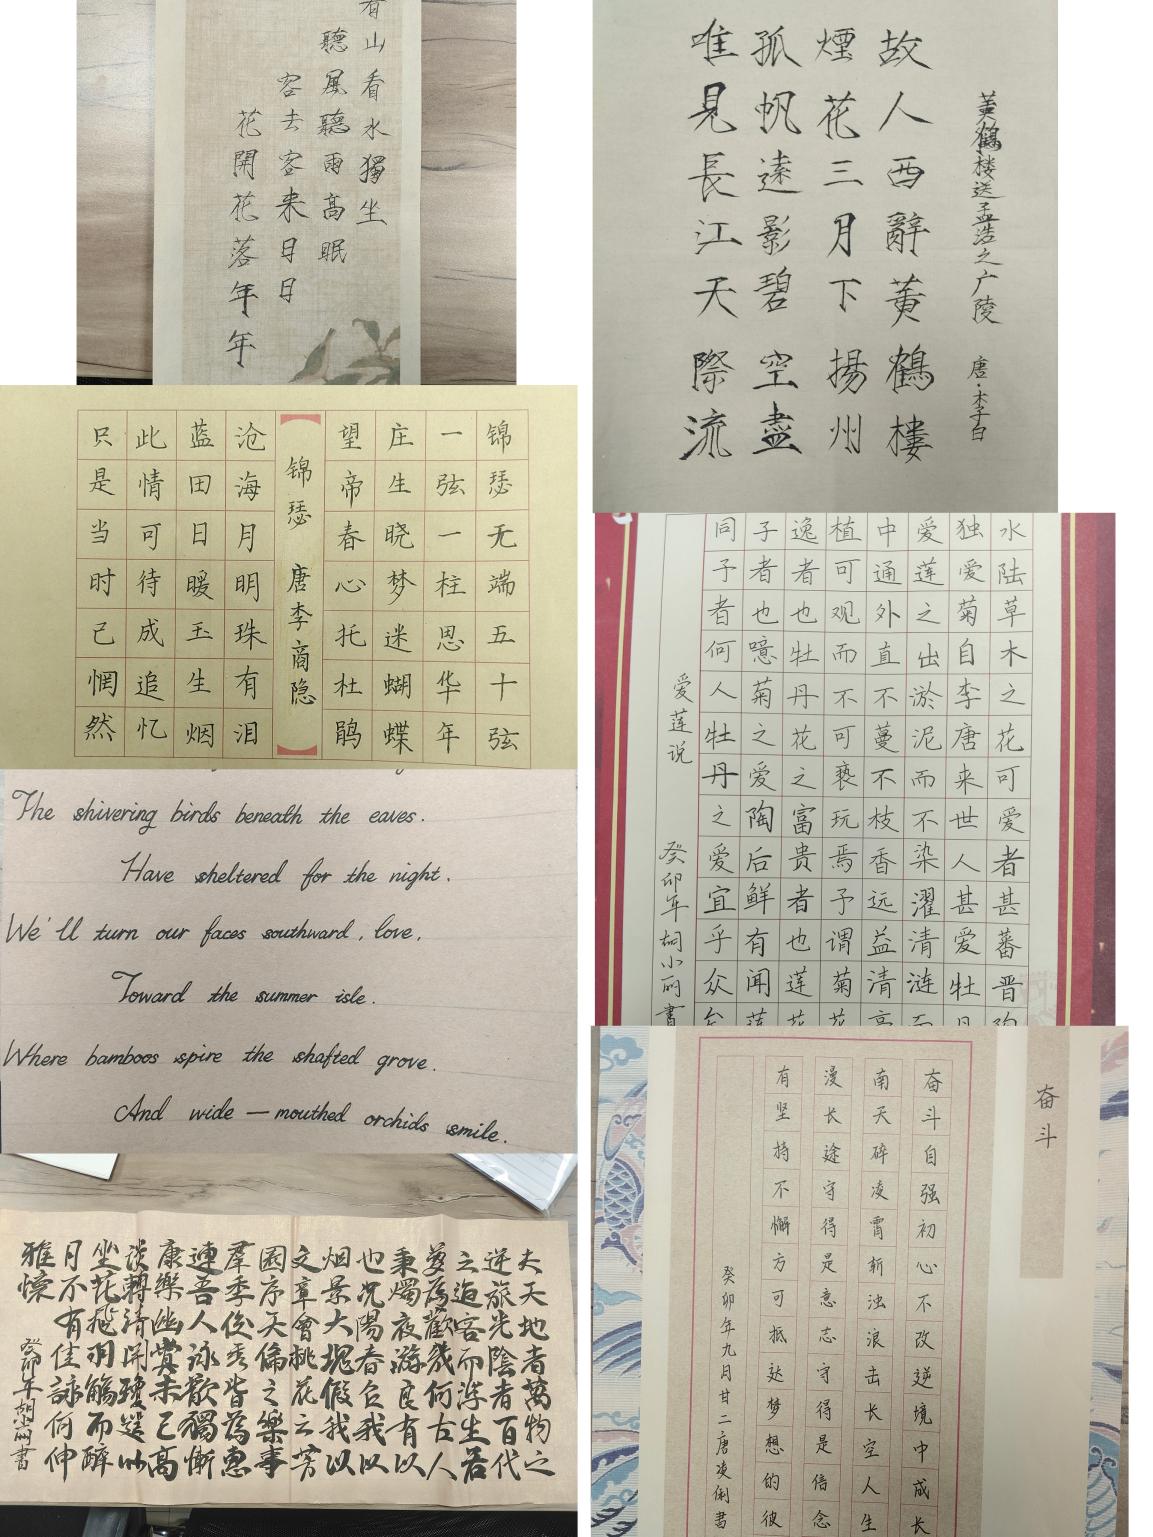 看山看水獨坐
聽風聽雨高眠
客去客来日日
花開花落年年
黄鶴楼送孟浩之广陵 唐·李白
故人西辭黄鶴樓
煙花三月下揚州
孤帆遠影碧空盡
唯見長江天際流
锦瑟无端五十弦
一弦一柱思华年
庄生晓梦迷蝴蝶
望帝春心托杜鹃
锦瑟 唐李商隐
沧海月明珠有泪
蓝田日暖玉生烟
此情可待成追忆
只是当时已惘然
水陆草木之花可爱者甚蕃晋陶
独爱菊自李唐来世人甚爱牡丹
爱莲之出淤泥而不染濯清涟而
中通外直不蔓不枝香远益清亭
植可观而不可亵玩焉予谓菊花
逸者也牡丹花之富贵者也莲花
子者也噫菊之爱陶后鲜有闻莲
同予者何人牡丹之爱宜乎众矣
爱莲说 癸卯年胡小丽書
The shivering birds beneath the eaves.
Have sheltered for the night.
We'll turn our faces southward, love,
Toward the summer isle.
Where bamboos spire the shafted grove.
And wide—mouthed orchids smile.
奋斗
奋斗自强初心不改逆境中成长
南天碎凌霄斩浊浪击长空人生
漫长途守得是意志守得是信念
有坚持不懈方可抵达梦想的彼
癸卯年九月廿二唐凌俐書
夫天地者萬物之
逆旅光陰者百代
之過客而浮生若
夢為歡幾何古人
秉燭夜游良有以
也况陽春召我以
烟景大塊假我以
文章會桃花之芳
園序天倫之樂事
羣季俊秀皆為惠
連吾人詠歌獨慚
康樂幽賞未已高
談轉清開瓊筵以
坐花飛羽觴而醉
月不有佳詠何伸
雅懷
癸卯年胡小丽書